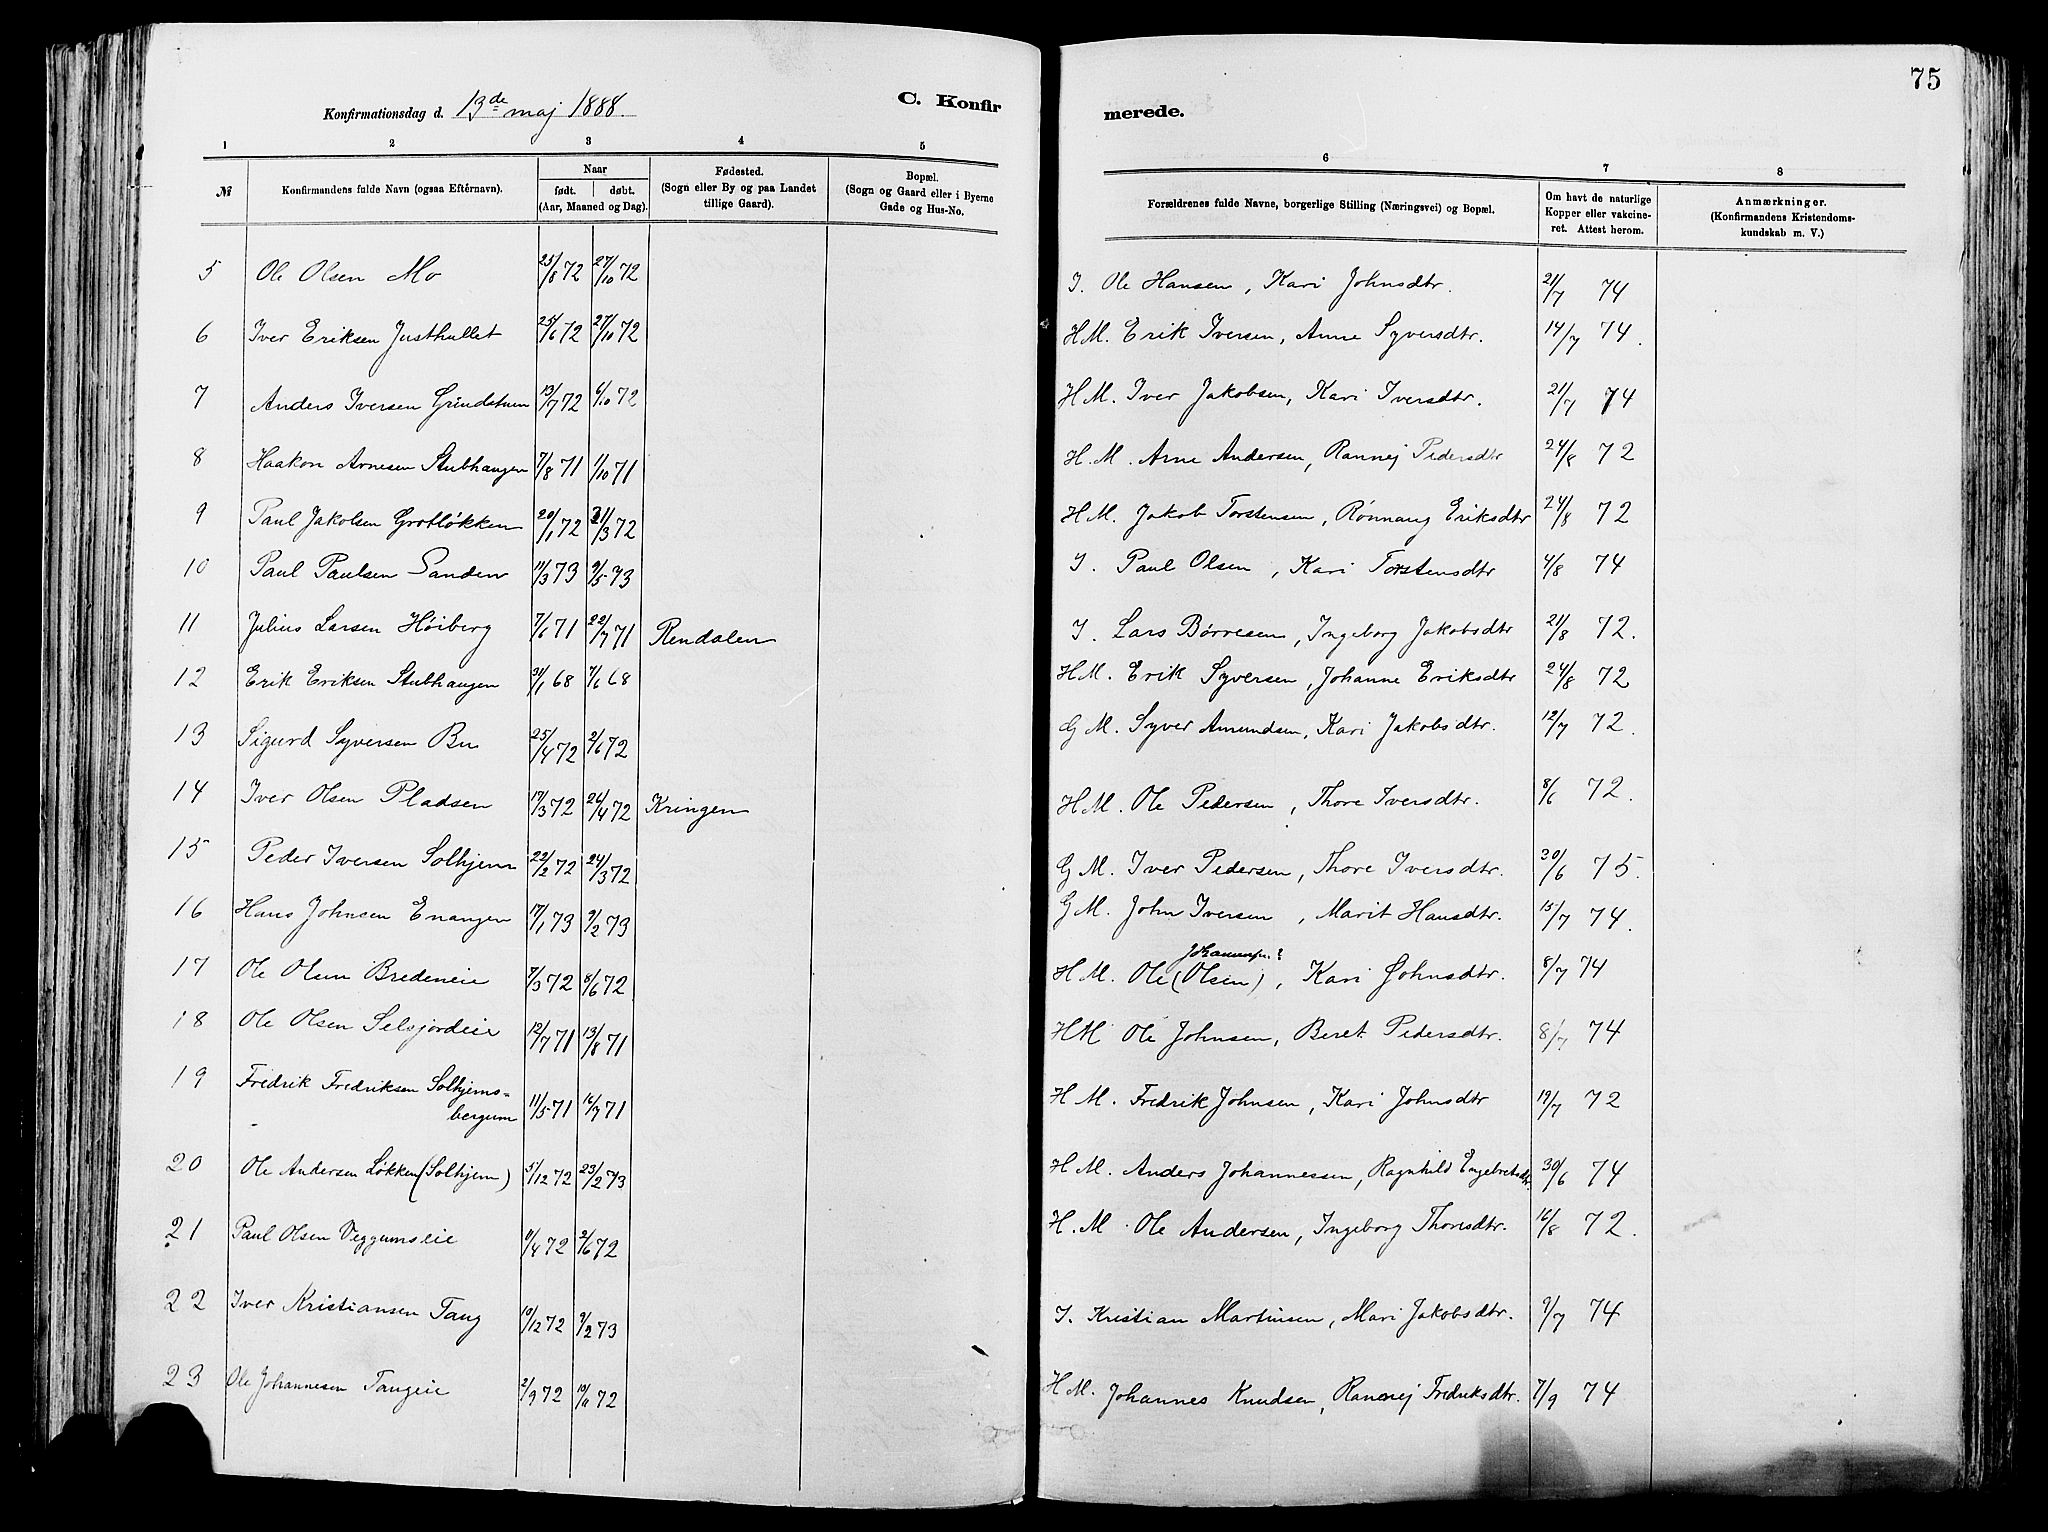 75
Konfirmationsdag d. 13de maj 1888. C. Konfirmerede.
1 2 3 4 5 6 7 8
№ Konfirmandens fulde Navn (ogsaa Efternavn). Naar født. døbt. (Aar, Maaned og Dag). Fødested. (Sogn eller By og paa Landet tillige Gaard). Bopæl. (Sogn og Gaard eller i Byerne Gade og Hus-No. Forældrenes fulde Navne, borgerlige Stilling (Næringsvei) og Bopæl. Om havt de naturlige Kopper eller vakcineret. Attest herom. Anmærkninger. (Konfirmandens Kristendomskundskab m. V.)
5 Ole Olsen Mo 23/8 72 27/10 72 I. Ole Hansen, Kari Johnsdtr. 21/7 74
6 Iver Eriksen Justhullet 25/6 72 27/10 72 H M. Erik Iversen, Anne Syversdtr. 14/7 74.
7 Anders Iversen Grindstuen 13/7 72 6/10 72 H M. Iver Jakobsen, Kari Iversdtr. 21/7 74
8 Haakon Arnesen Stubhaugen 7/8 71 1/10 71 H. M. Arne Andersen, Rannej Pedersdtr 24/8 72
9 Paul Jakobsen Grotløkken 20/1 72 31/3 72 H M. Jakob Torstensen, Rønnaug Eriksdtr 24/8 72
10 Paul Paulsen Sanden 11/3 73 9/5 73 I. Paul Olsen, Kari Torstensdtr 4/8 74
11 Julius Larsen Høiberg 7/6 71 22/7 71 Rendalen I. Lars Børresen, Ingeborg Jakobsdtr 21/8 72.
12 Erik Eriksen Stubhaugen 31/1 68 7/6 68 H M. Erik Syversen, Johanne Eriksdtr 24/8 72
13 Sigurd Syversen Bu 25/4 72 2/6 72 G M. Syver Amundsen, Kari Jakobsdtr. 12/7 72.
14 Iver Olsen Pladsen 17/3 72 26/4 72 Kringen H M. Ole Pedersen, Thore Iversdtr. 8/6 72.
15 Peder Iversen Solhjem 22/2 72 24/3 72 G M. Iver Pedersen, Thore Iversdtr. 30/6 75.
16 Hans Johnsen Enangen 17/1 73 9/2 73 G M. John Iversen, Marit Hansdtr. 15/7 74.
17 Ole Olsen Bredeneie 9/3 72 8/6 72 H M. Ole (Olsen), Kari Johnsdtr. 8/7 74
18 Ole Olsen Selsjordeie 12/7 71 13/8 71 H M Ole Johnsen, Beret Pedersdtr. 8/7 74
19 Fredrik Fredriksen Solhjems-
bergum 11/5 71 16/7 71 H M. Fredrik Johnsen, Kari Johnsdtr 19/7 72
20 Ole Andersen Løkken (Solhjem) 5/12 72 23/2 73 H M. Anders Johannessen, Ragnhild Engebretsdtr. 30/6 74
21 Paul Olsen Veggumseie 11/4 72 2/6 72 H. M. Ole Andersen, Ingeborg Thoresdtr. 16/8 72.
22 Iver Kristiansen Tang 19/12 72 9/2 73 I. Kristian Martinsen, Mari Jakobsdtr. 9/7 74
23 Ole Johannesen Tangeie 2/9 72 72 H M. Johannes Knudsen, Rannej Fredriksdtr. 7/9 74